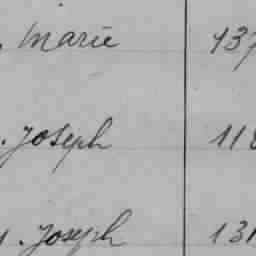 Marie 137
. Joseph 118
. Joseph 131